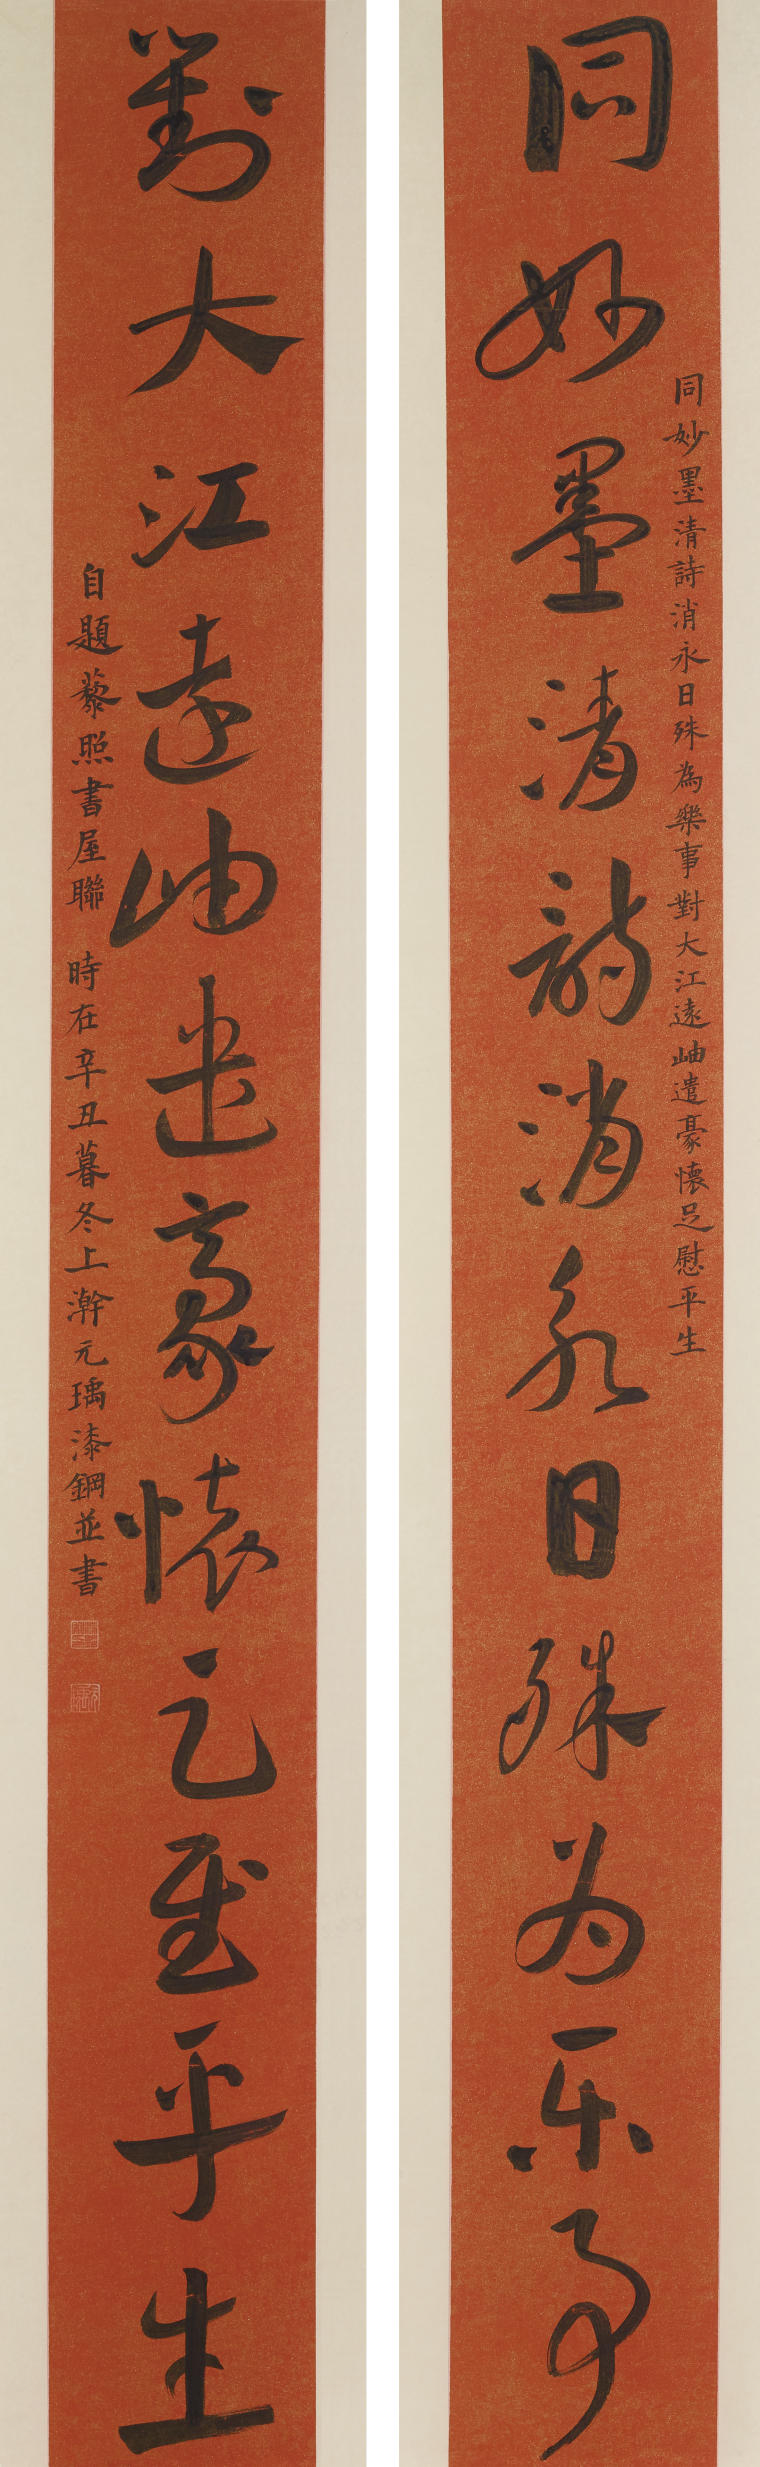 同妙墨清詩消永日殊為樂事對大江遠岫遣豪懷足慰平生
同妙墨清詩消永日殊为乐事
對大江遠岫遣豪懷足慰平生
自題藜照書屋聯 時在辛丑暮冬上澣元瑀漆鋼並書